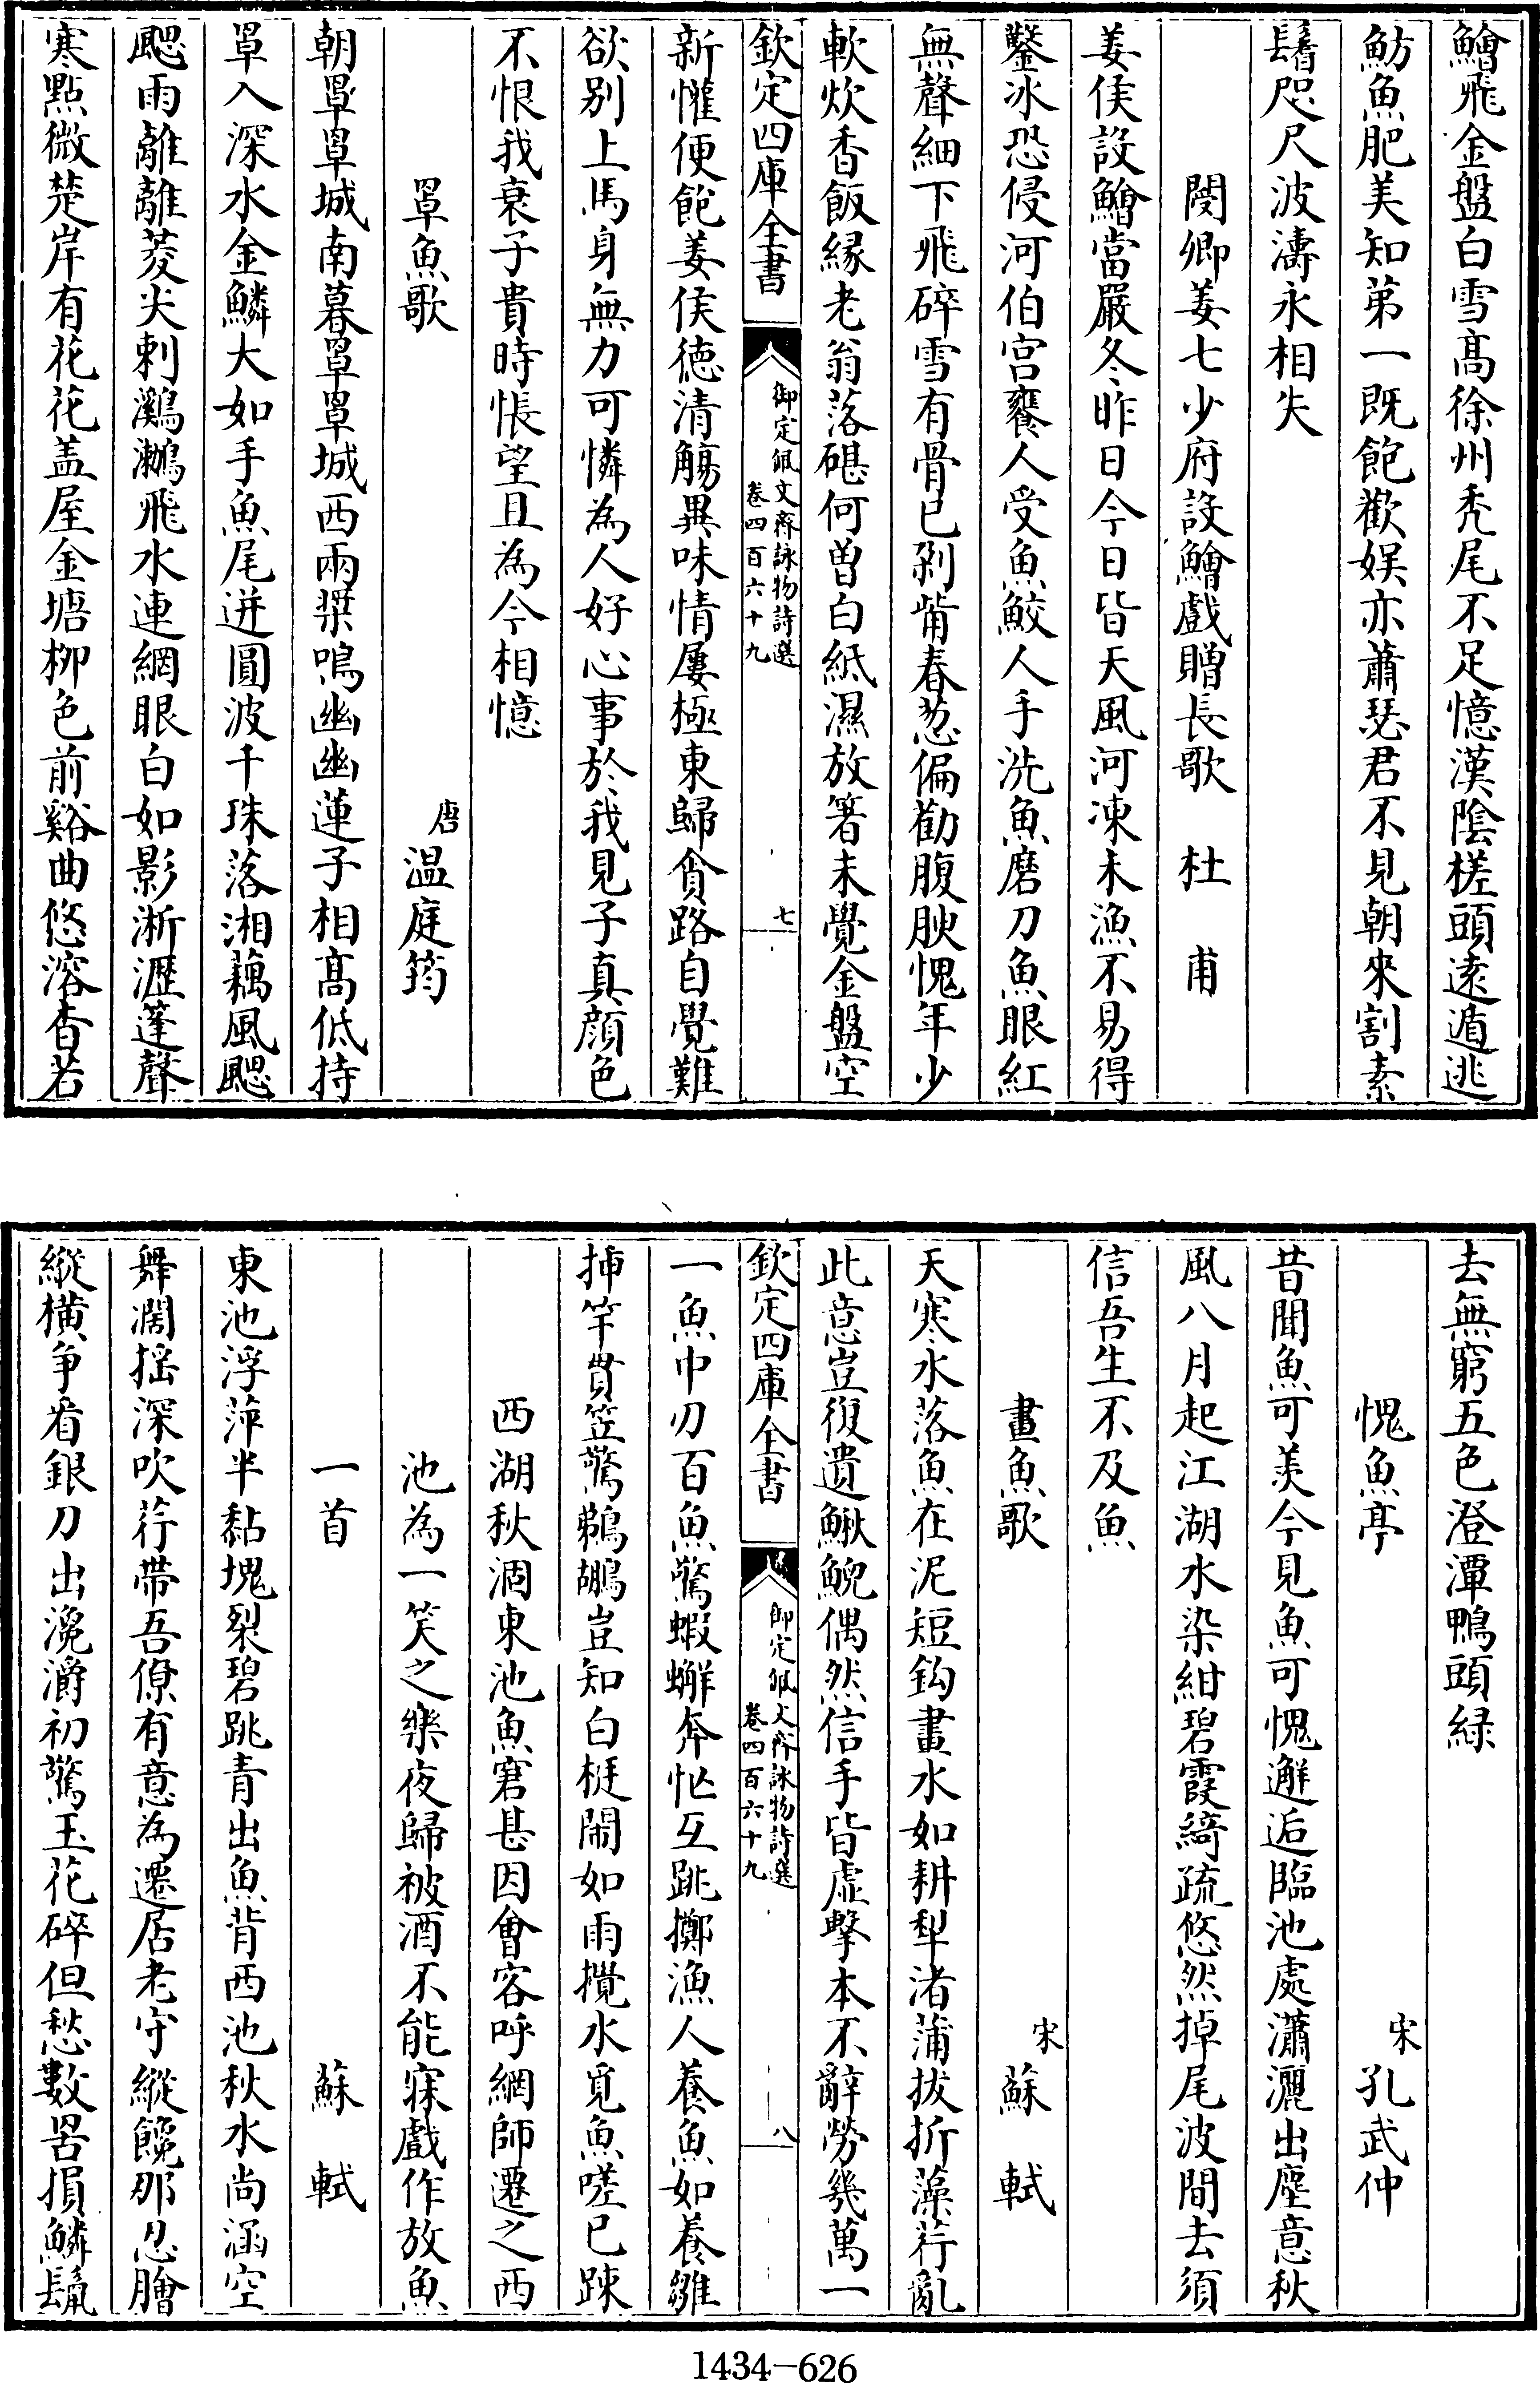 鱠飛金盤白雪髙徐州秃尾不足憶漢隂槎頭逺遁逃
魴魚肥美知第一既飽歡娱亦蕭瑟君不見朝來割素
鬐咫尺波濤永相失
閿鄉姜七少府設鱠戲贈長歌　杜甫
姜侯設鱠當嚴冬昨日今日皆天風河凍未漁不易得
鑿冰恐侵河伯宫饔人受魚鮫人手洗魚磨刀魚眼紅
無聲細下飛碎雪有骨已剁觜春葱偏勸腹腴愧年少
軟炊香飯縁老翁落碪何曽白紙濕放箸未覺金盤空
欽定四庫全書
御定佩文齋詠物詩選
卷四百六十九
七
新懽便飽姜侯徳清觴異味情屢極東歸貪路自覺難
欲别上馬身無力可憐為人好心事於我見子真顔色
不恨我衰子貴時悵望且為今相憶
罩魚歌　唐温庭筠
朝罩罩城南暮罩罩城西兩槳鳴幽幽蓮子相髙低持
罩入深水金鱗大如手魚尾迸圓波千珠落湘藕風颸
颸雨離離菱尖刺鸂鶒飛水連網眼白如影淅瀝篷聲
寒點微楚岸有花花盖屋金塘柳色前谿曲悠溶杳若
去無窮五色澄潭鴨頭緑
愧魚亭　宋孔武仲
昔聞魚可羡今見魚可愧邂逅臨池處瀟灑出塵意秋
風八月起江湖水染紺碧霞綺疏悠然掉尾波間去須
信吾生不及魚
畫魚歌　宋蘇軾
天寒水落魚在泥短鈎畫水如耕犁渚蒲拔折藻荇亂
此意豈復遺鰍鯢偶然信手皆虚擊本不辭勞幾萬一
欽定四庫全書
御定佩文齋詠物詩選
卷四百六十九
八
一魚中刃百魚驚蝦蠏奔忙互跳擲漁人養魚如養雛
揷竿貫笠驚鵜鶘豈知白梃閙如雨攪水覓魚嗟已踈
西湖秋涸東池魚窘甚因會客呼網師遷之西
池為一笑之樂夜歸被酒不能寐戲作放魚
一首　蘇軾
東池浮萍半黏塊裂碧跳青出魚背西池秋水尚涵空
舞濶揺深吹荇帶吾僚有意為遷居老守縱饞那忍膾
縱横争看銀刀出瀺灂初驚玉花碎但愁數罟損鱗鬣
1434-626